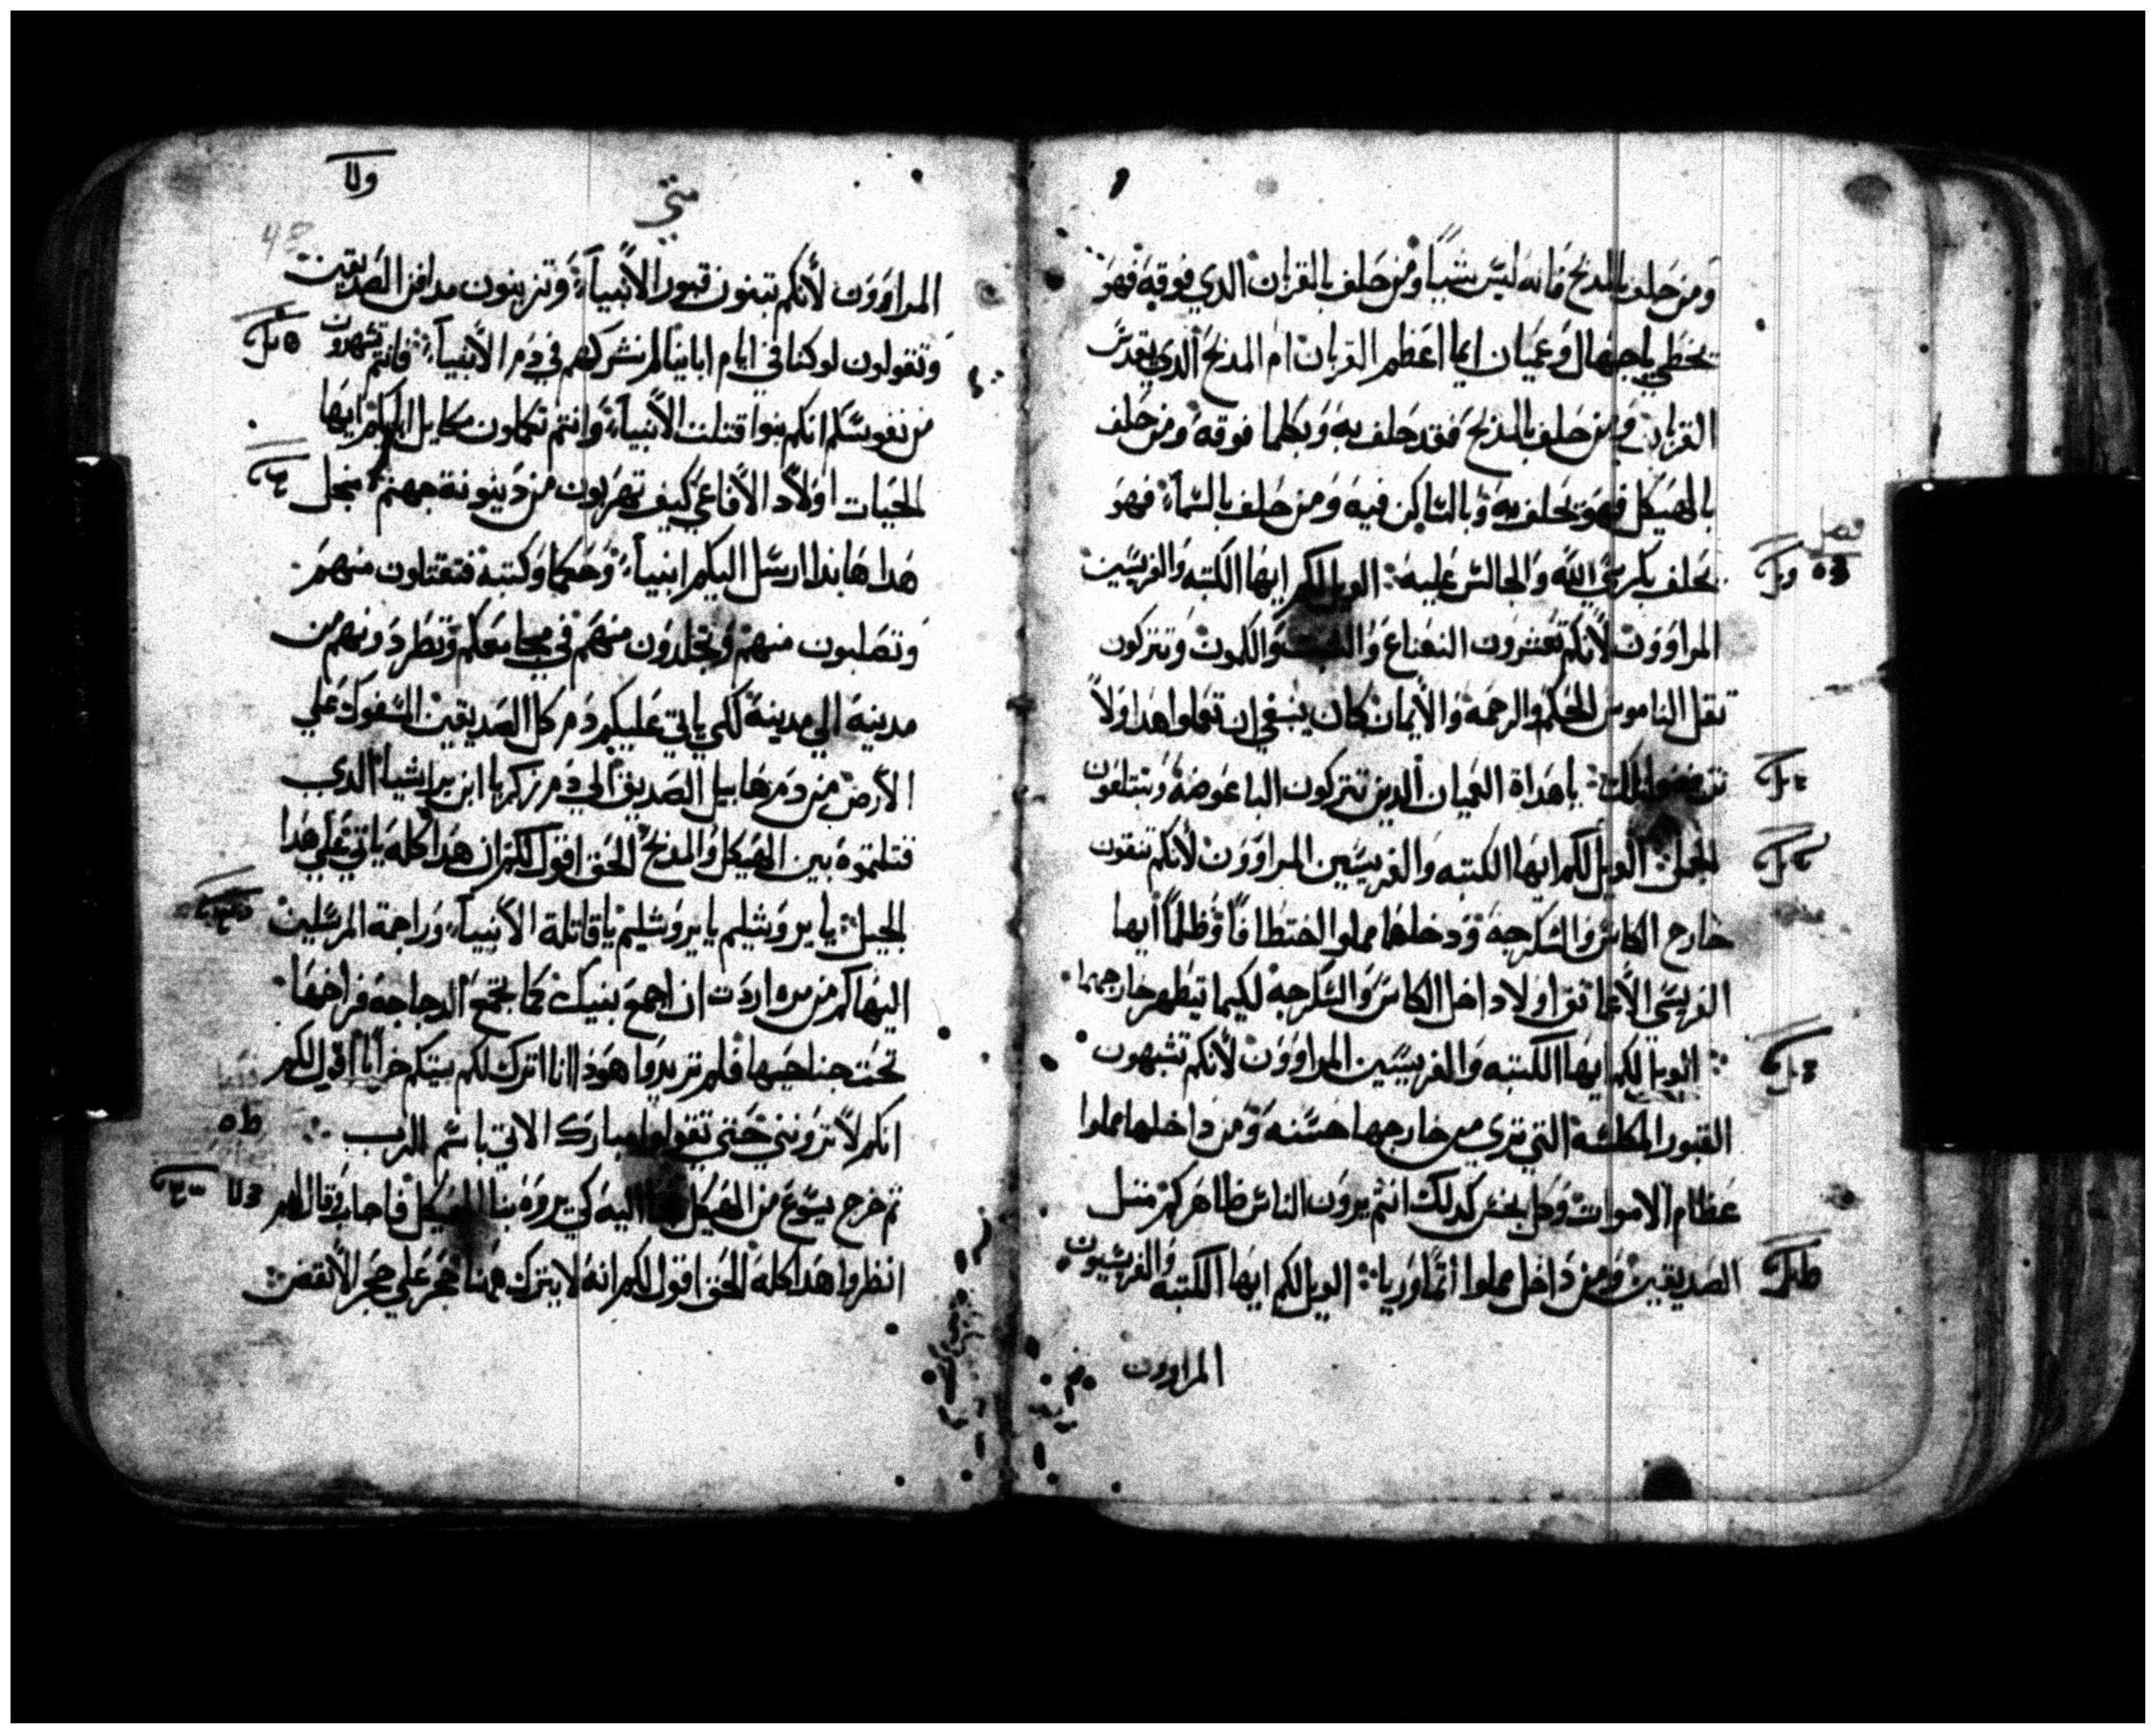 ومن حلف بالمدبح فانه ليس شيأ ومن حلف بالقربان الدي فوقه فهو
يخطي ياجهال وعميان ايما اعظم القربان ام المدبح الدي يقدس
القربان ومن حلف بالمدبح فقد حلف به وبكلما فوقه ومن حلف
بالهيكل فهو يحلف به وبالساكن فيه ومن حلف بالسمآء فهو
فصل
يحلف بكرسي الله والجالس عليه الويل لكم ايها الكتبه والفريسين
المراوون لأنكم تعشرون النعناع والشبت والكمون وتتركون
تقل الناموس الحكم والرحمة والأيمان كان ينبغي ان تعملوا هدا ولا
ياهداة العميان الدين تتركون الباعوضة وتبتلعون
الجمل الويل لكم ايها الكتبه والفريسين المراوون لأنكم تنقون
خارج الكاس والسكرجة وداخلها مملوا اختطافا وظلما ايها
الفريسي الأعما نق اولا داخل الكاس والسكرجه لكيما يتطهر خارجهما
الويل لكم ايها الكتبه والفريسين المراوون لأنكم تشبهون
القبور المكلسة التي ترى من خارجها حسنه ومن داخلها مملوا
عظام الاموات وكل نجس كدلك انتم يرون الناس ظاهركم متل
الصديقين ومن داخل مملوا أتما وريا الويل لكم ايها الكتبه والفريسيون
المراوون
متي
48
المراوون لأنكم تبنون قبور الأنبيآء وتزينون مدافن الصديقين
وتقولون لو كنا في ايام اباينا لم نشركهم في دم الأنبيآء فانتم تشهرون
من نفوسكم انكم بنوا قتلت الأنبيآء وانتم تكملون مكايل ابايكم ايها
الحيات اولاد الأفاعي كيف تهربون من دينونة جهنم من اجل
هدا هاندا ارسل اليكم انبيآء وحكما وكتبة فتقتلون منهم
وتصلبون منهم وتجلدون منهم في مجامعكم وتطردونهم من
مدينه الي مدينة لكي ياتي عليكم دم كل الصديقين السفوك علي
الأرض من دم هابيل الصديق الي دم زكريا ابن براشيا الدي
قتلتموه بين الهيكل والمدبح الحق اقول لكم ان هدا كله ياتي علي هدا
الجيل يا يروشليم يا يروشليم يا قاتلة الأنبيآء وراجمة المرسلين
اليها كم من مره اردت ان اجمع بنيك كما تجمع الدجاجه فراخها
تحت جناحيها فلم تريدوا هودا انا اترك لكم بيتكم خرابا اقول لكم
انكم لا ترونني حتي تقولوا مبارك الاتي باسم الرب
تم خرج يسوع من الهيكل اليه كي يروه بنا الهيكل فاجاب وقال لهم
انظروا هدا كله الحق اقول لكم انه لا يترك هنا حجر علي حجر الا نقض